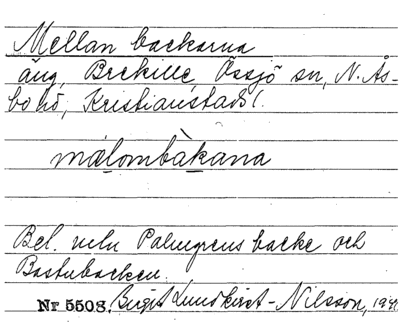 Mellan backarna
äng, Brekille, Össjö sn, N. Ås-
bo hd, Kristianstads l.
mælombàkana
Bel. mln Palmgrens backe och
Bastubacken.
Nr 5508. Birgit Lundkvist-Nilsson, 194